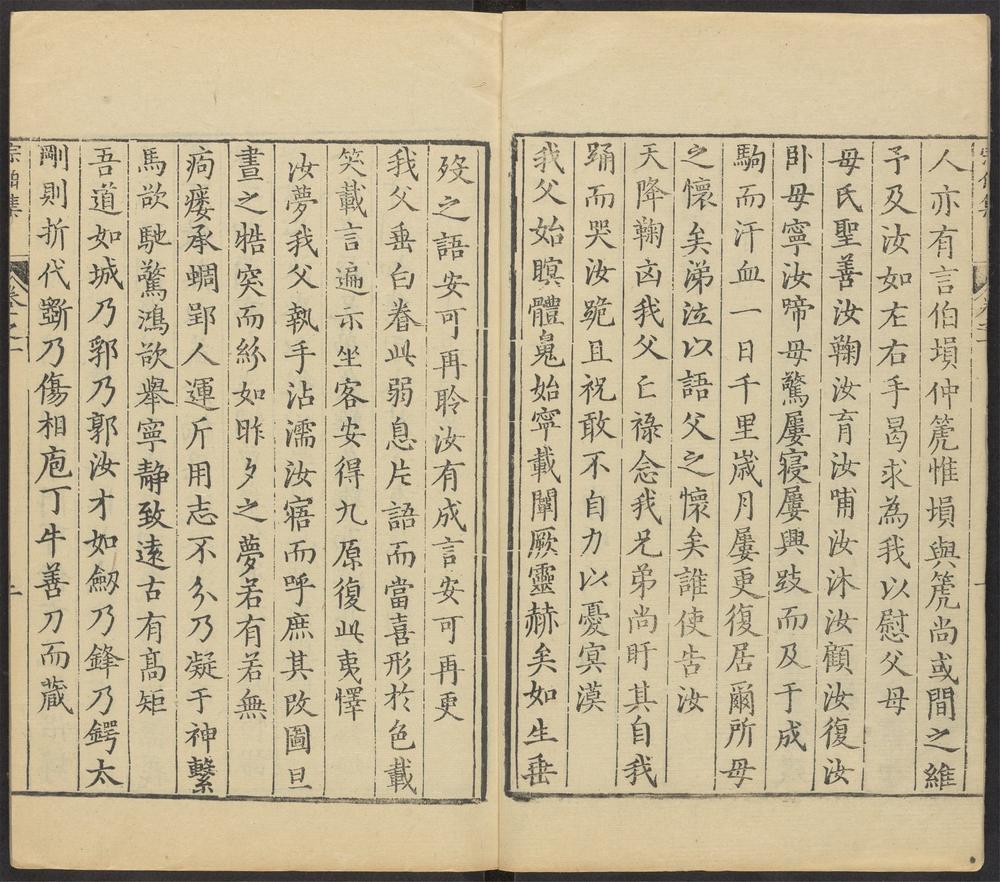 人亦有言伯塤仲箎惟塤與箎尚或間之維
予及汝如左右手曷求為我以慰父母
母氏聖善汝鞠汝育汝哺汝沐汝顧汝復汝
卧母寧汝啼母驚屢寢屢興跂而及于成
駒而汗血一日千里嵗月屢更復居爾所母
之懷矣涕泣以語父之懷矣誰使告汝
天降鞠凶我父亡祿念我兄弟尚盱其自我
踊而哭汝跪且祝敢不自力以憂寞漠
我父始瞑體䰟始寧載闡厥靈赫矣如生垂
歿之語安可再聆汝有成言安可再更
我父垂白眷此弱息片語而當喜形於色載
笑載言遍示坐客安得九原復此夷懌
汝夢我父執手沾濡汝寤而呼庶其改圖旦
晝之牿突而紛如昨夕之夢若有若無
痀瘻承蜩郢人運斤用志不分乃凝于神縶
馬欲馳驚鴻欲舉寧静致遠古有髙矩
吾道如城乃郛乃郭汝才如劒乃鋒乃鍔太
剛則折代斵乃傷相庖丁牛善刀而蔵
集
卷之二